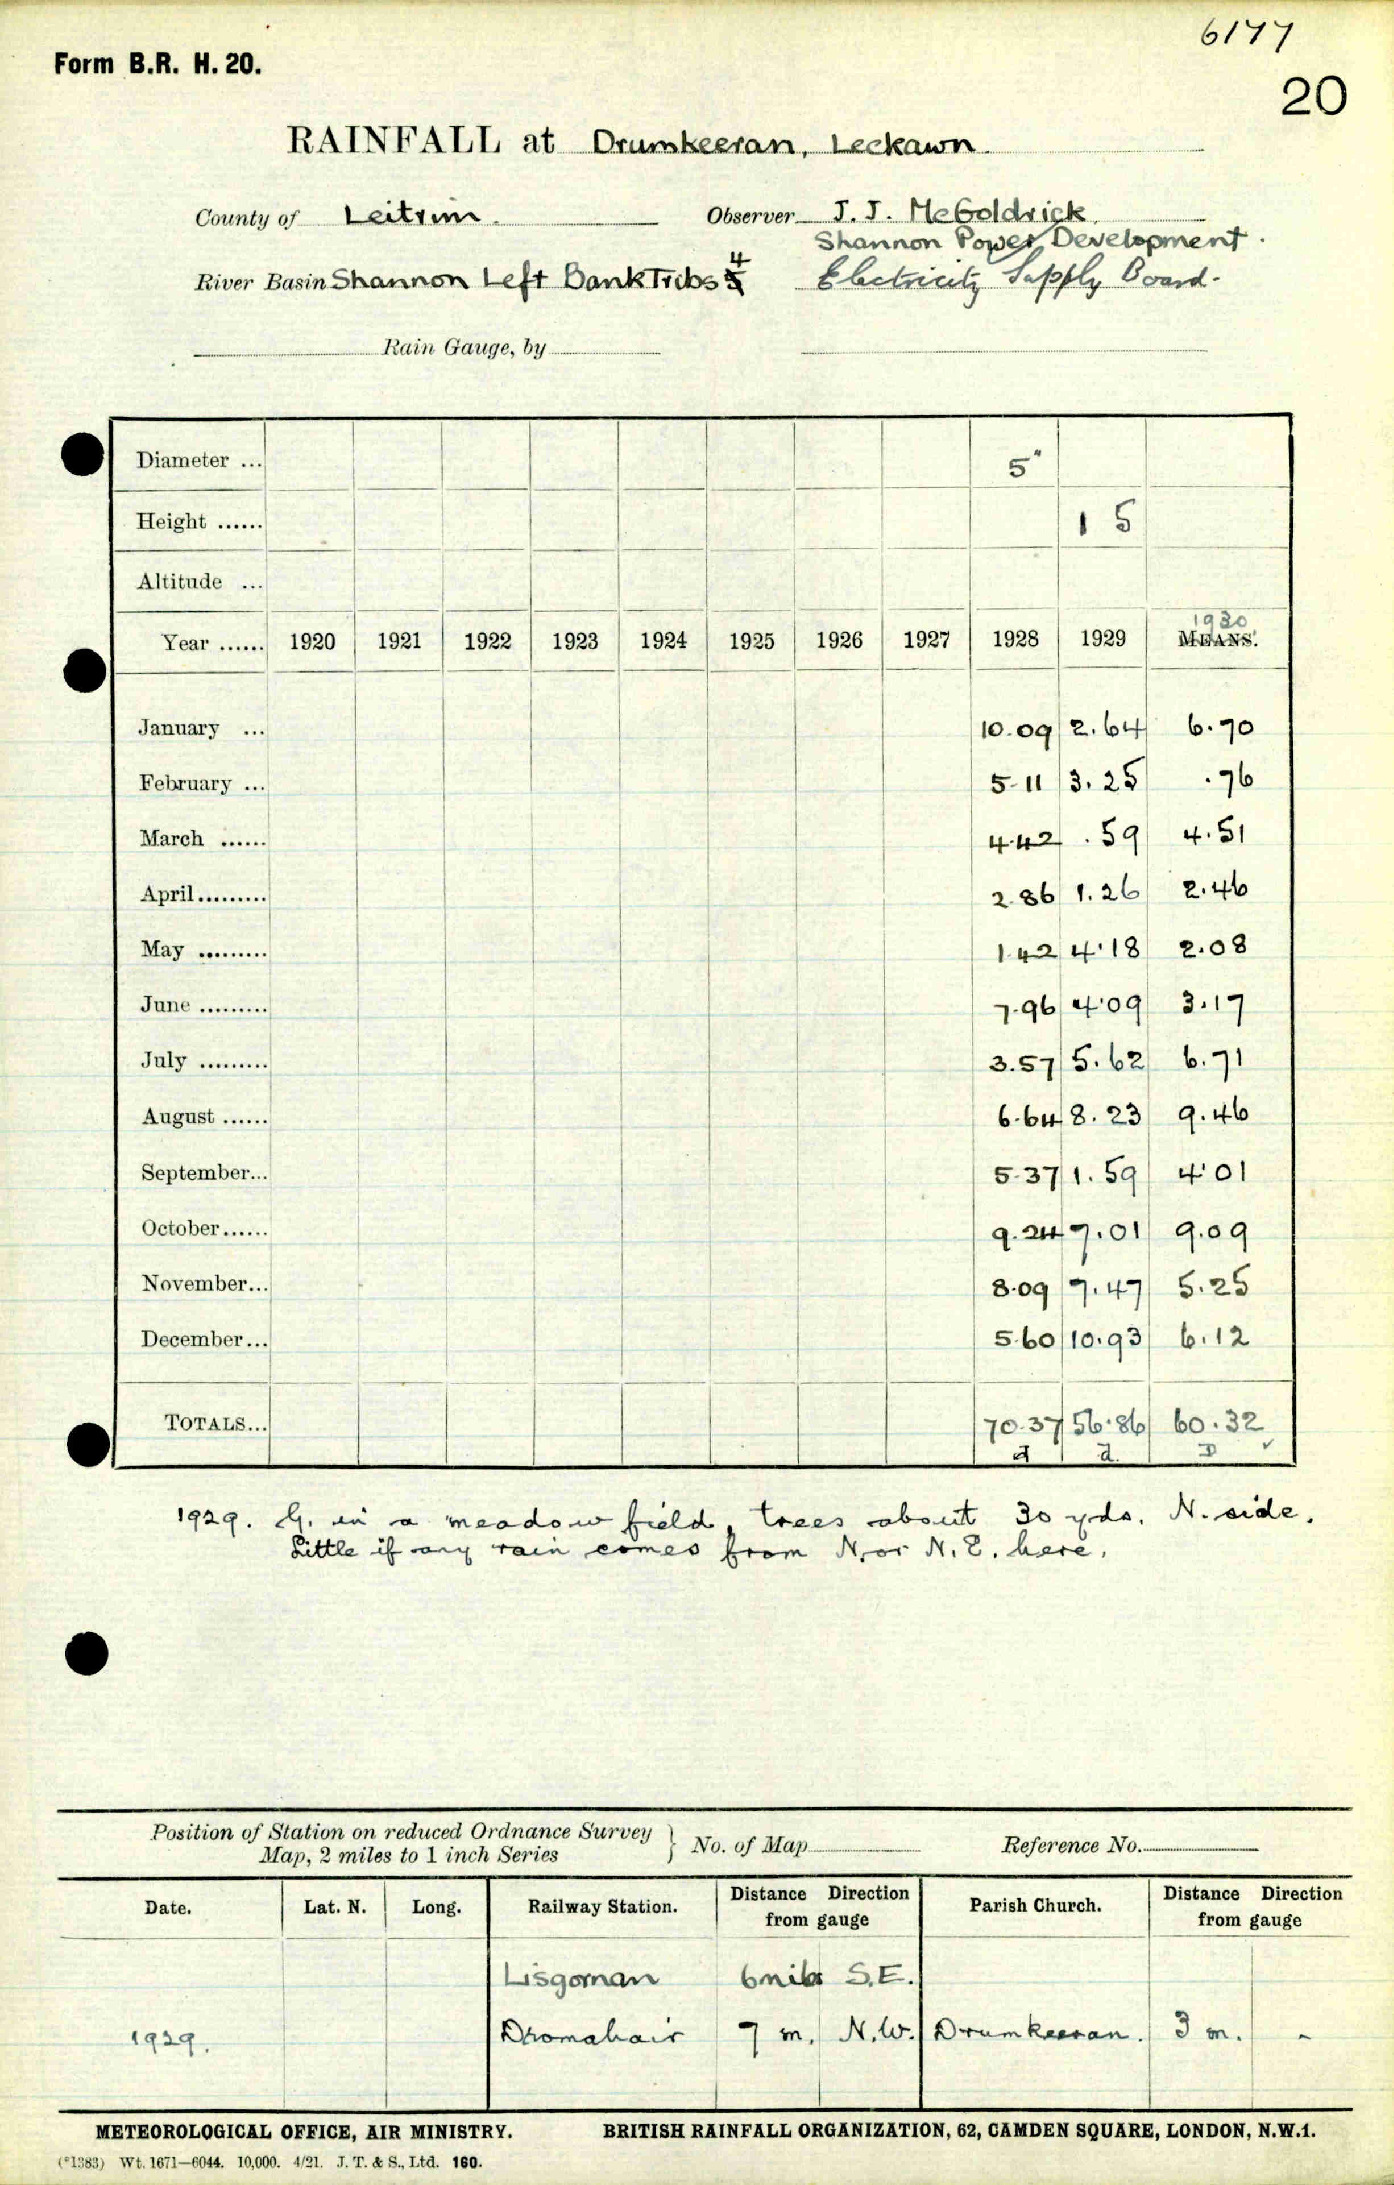 6177
Form B.R. H. 20.
20
RAINFALL at Drumkeeran, Leckawn
County of Leitrim. Observer J. J. McGoldrick
Shannon Power Development.
River Basin Shannon Left Bank Tribs 4 Electricity Supply Board.
Rain Gauge, by
Diameter ... 5"
Height ...... 1 5
Altitude ...
1930
Year ...... 1920 1921 1922 1923 1924 1925 1926 1927 1928 1929 MEANS.
January ... 10.09 2.64 6.70
February ... 5.11 3.25 .76
March ...... 4.42 .59 4.51
April ......... 2.86 1.26 2.46
May ......... 1.42 4.18 2.08
June ......... 7.96 4.09 3.17
July ......... 3.57 5.62 6.71
August ...... 6.64 8.23 9.46
September... 5.37 1.59 4.01
October...... 9.24 7.01 9.09
November... 8.09 7.47 5.25
December... 5.60 10.93 6.12
TOTALS... 70.37 56.86 60.32
1929. G. in a meadow field, trees about 30 yds. N. side.
Little if any rain comes from N. or N.E. here.
Position of Station on reduced Ordnance Survey
Map, 2 miles to 1 inch Series } No. of Map Reference No.
Date. Lat. N. Long. Railway Station. Distance Direction from gauge Parish Church. Distance Direction from gauge
Lisgorman 6 miles S.E.
1929. Dromahair 7 m. N.W. Drumkeeran. 3 m. -
METEOROLOGICAL OFFICE, AIR MINISTRY. BRITISH RAINFALL ORGANIZATION, 62, CAMDEN SQUARE, LONDON, N.W.1.
(*1383) Wt. 1671—6044. 10,000. 4/21. J. T. & S., Ltd. 160.